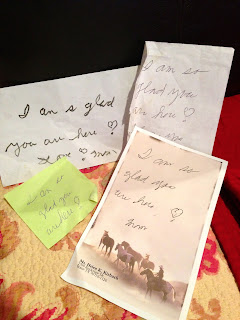 I am s glad
you are here! ♡
Love! Mom
I am so
glad you
are here! ♡
Mom
glad you
are here!
I am so
glad you
are here. ♡
Mom